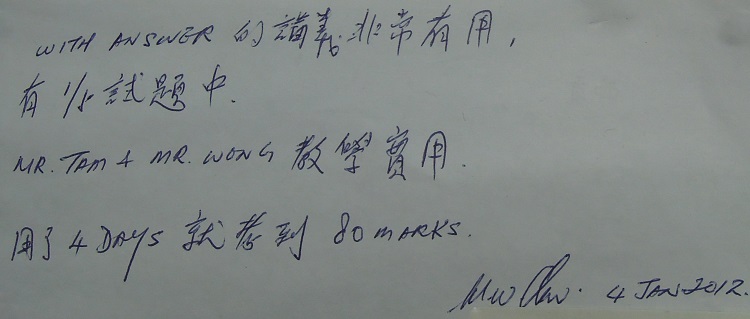 WITH ANSWER 的講義非常有用,
有 1/5 試題中.
MR. TAM & MR. WONG 教學實用.
用了 4 DAYS 就考到 80 MARKS.
4 JAN 2012.